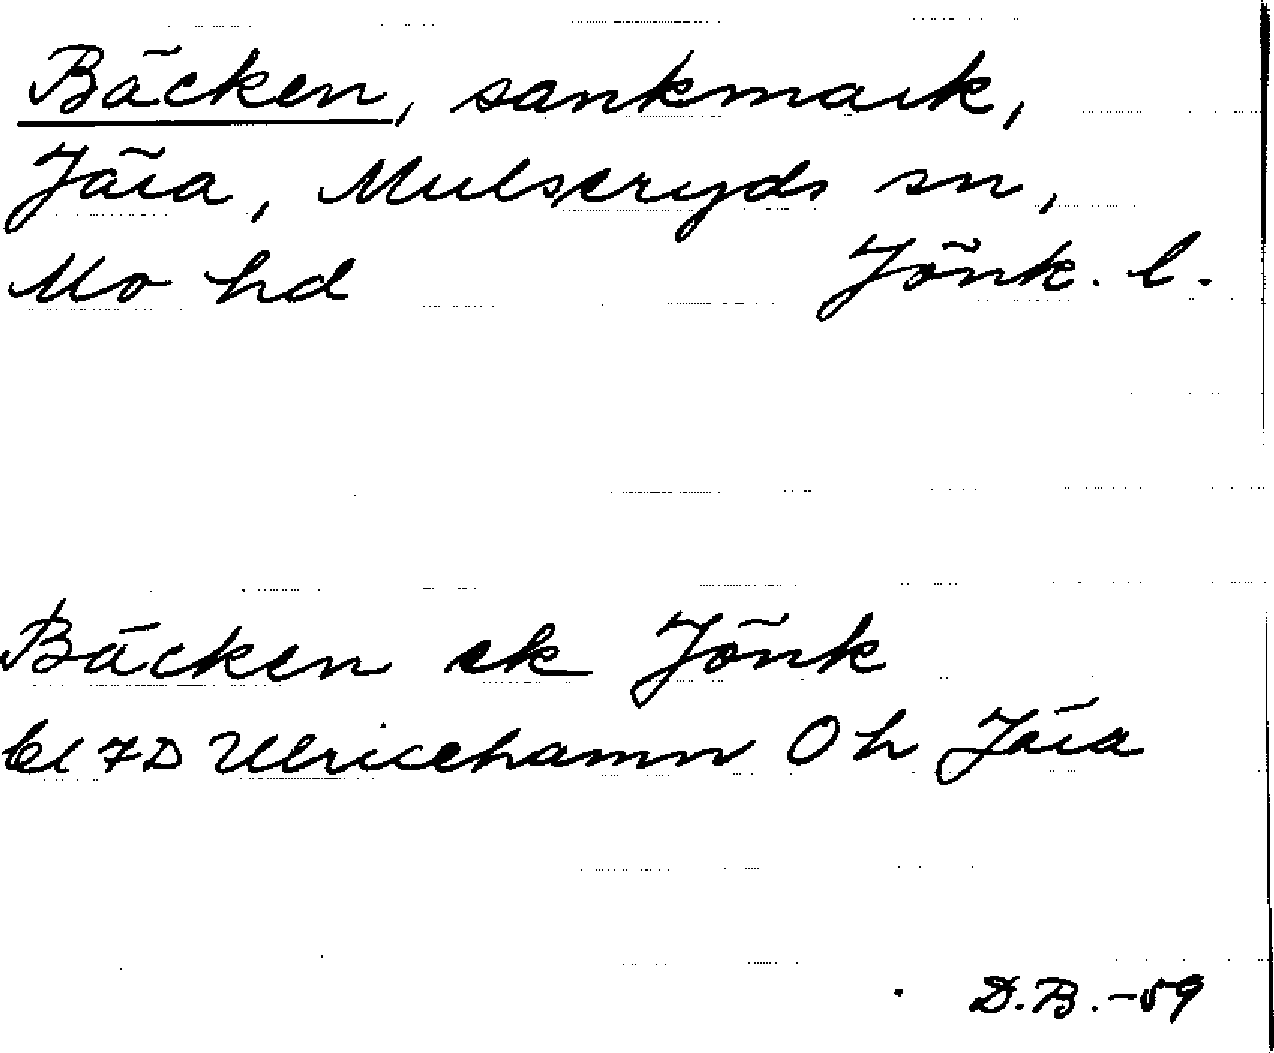 Bäcken, sankmark,
Jära, Mulseryds sn,
Mo hd Jönk. l.
Bäcken ek Jönk
bl 7D Ulricehamn Öh Jära
D.B. -59